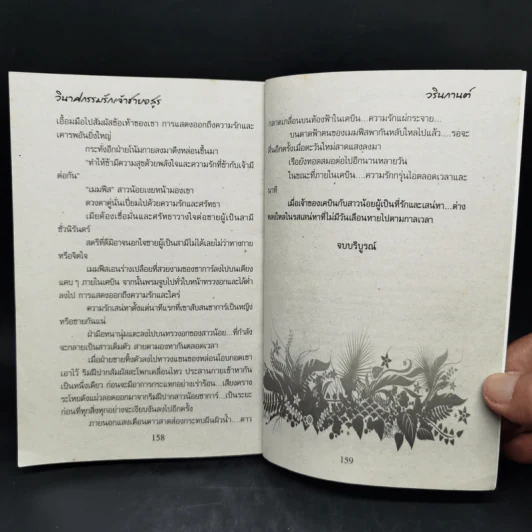 วินาศกรรมรักเจ้าชายอสูร
เอื้อมมือไปสัมผัสข้อเท้าของเขา การแสดงออกถึงความรักและ
เคารพอันยิ่งใหญ่
กระทั่งอีกฝ่ายโน้มกายลงมาดึงหล่อนขึ้นมา
"ทำให้ข้ามีความสุขด้วยพลังใจและความรักที่ข้ากับเจ้ามี
ต่อกัน"
"เมมฟิส" สาวน้อยเงยหน้ามองเขา
ดวงตาคู่นั้นเปี่ยมไปด้วยความรักและศรัทธา
เมียต้องเชื่อมั่นและศรัทธาวางใจต่อชายผู้เป็นสามี
ชั่วนิรันดร์
สตรีที่ดีมิอาจนอกใจชายผู้เป็นสามีไม่ได้เลยไม่ว่าทางกาย
หรือจิตใจ
เมมฟิสเอนร่างเปลือยที่สวยงามของซาการ์ลงไปบนเตียง
แคบ ๆ ภายในเคบิน จากนั้นพรมจูบไปทั่วใบหน้าทรวงอกและไล้ต่ำ
ลงไป การแสดงออกถึงความรักและใคร่
ความรักเสน่หาตั้งแต่นาทีแรกที่เขาสับสนซาการ์เป็นหญิง
หรือชายกันแน่
ฝ่ามือหนานุ่มแตะลงไปบนทรวงอกของสาวน้อย...ที่กำลัง
จะกลายเป็นสาวเต็มตัว สายตามองหากันตลอดเวลา
เมื่อฝ่ายชายทิ้งตัวลงไปหาวงแขนของหล่อนโอบกอดเขา
เอาไว้ ริมฝีปากสัมผัสสะโพกเคลื่อนไหว ประสานกายเข้าหากัน
เป็นหนึ่งเดียว ก่อนจะมีอาการกระแทกอย่างเร่าร้อน...เสียงคราง
ระโหยดังแผ่วลอดออกมาจากริมฝีปากสาวน้อยซาการ์...เป็นระยะ
ก่อนที่ทุกสิ่งทุกอย่างจะเงียบงันลงไปอีกครั้ง
ภายนอกแสงเดือนดาวสาดส่องกระทบผืนผิวน้ำ...ดาว
158
วรินกานต์
กลาดเกลื่อนบนท้องฟ้าในเคบิน...ความรักแผ่กระจาย...
บนตาดฟ้าคนของเมมฟิสพากันหลับใหลไปแล้ว....รอจะ
ตื่นอีกครั้งเมื่อตะวันใหม่สาดแสงลงมา
เรือยังทอดสมอต่อไปอีกนานหลายวัน
ในขณะที่ภายในเคบิน....ความรักกรุ่นไอตลอดเวลาและ
นาที
เมื่อเจ้าของเคบินกับสาวน้อยผู้เป็นที่รักและเสน่หา...ต่าง
หลงใหลในรสเสน่หาที่ไม่มีวันเลือนหายไปตามกาลเวลา
จบบริบูรณ์
159